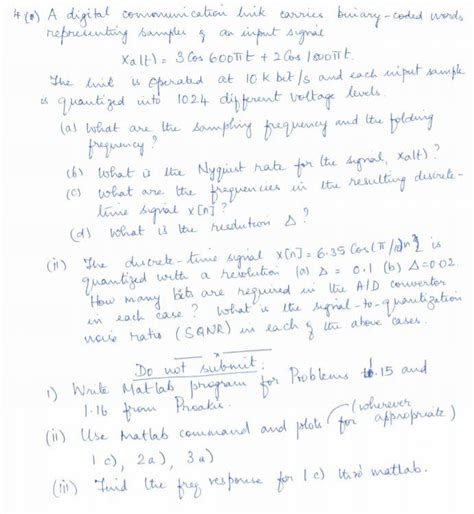 4 (i) A digital communication link carries binary-coded words
representing samples of an input signal
xa(t) = 3 Cos 600πt + 2 Cos 1800πt.
The link is operated at 10 k bit/s and each input sample
is quantized into 1024 different voltage levels.
(a) What are the sampling frequency and the folding
frequency?
(b) What is the Nyquist rate for the signal, xa(t)?
(c) What are the frequencies in the resulting discrete-
time signal x[n]?
(d) What is the resolution Δ?
(ii) The discrete-time signal x[n] = 6.35 Cos(π/10)n is
quantized with a resolution (a) Δ = 0.1 (b) Δ=0.02.
How many bits are required in the A/D convertor
in each case? What is the signal-to-quantization
noise ratio (SQNR) in each of the above cases.
Do not submit:
i) Write Matlab program for Problems 1.15 and
1.16 from Proakis.
(ii) Use Matlab command and plots (wherever
for appropriate)
1 c), 2 a), 3 a)
(iii) Find the freq response for 1 c) matlab.